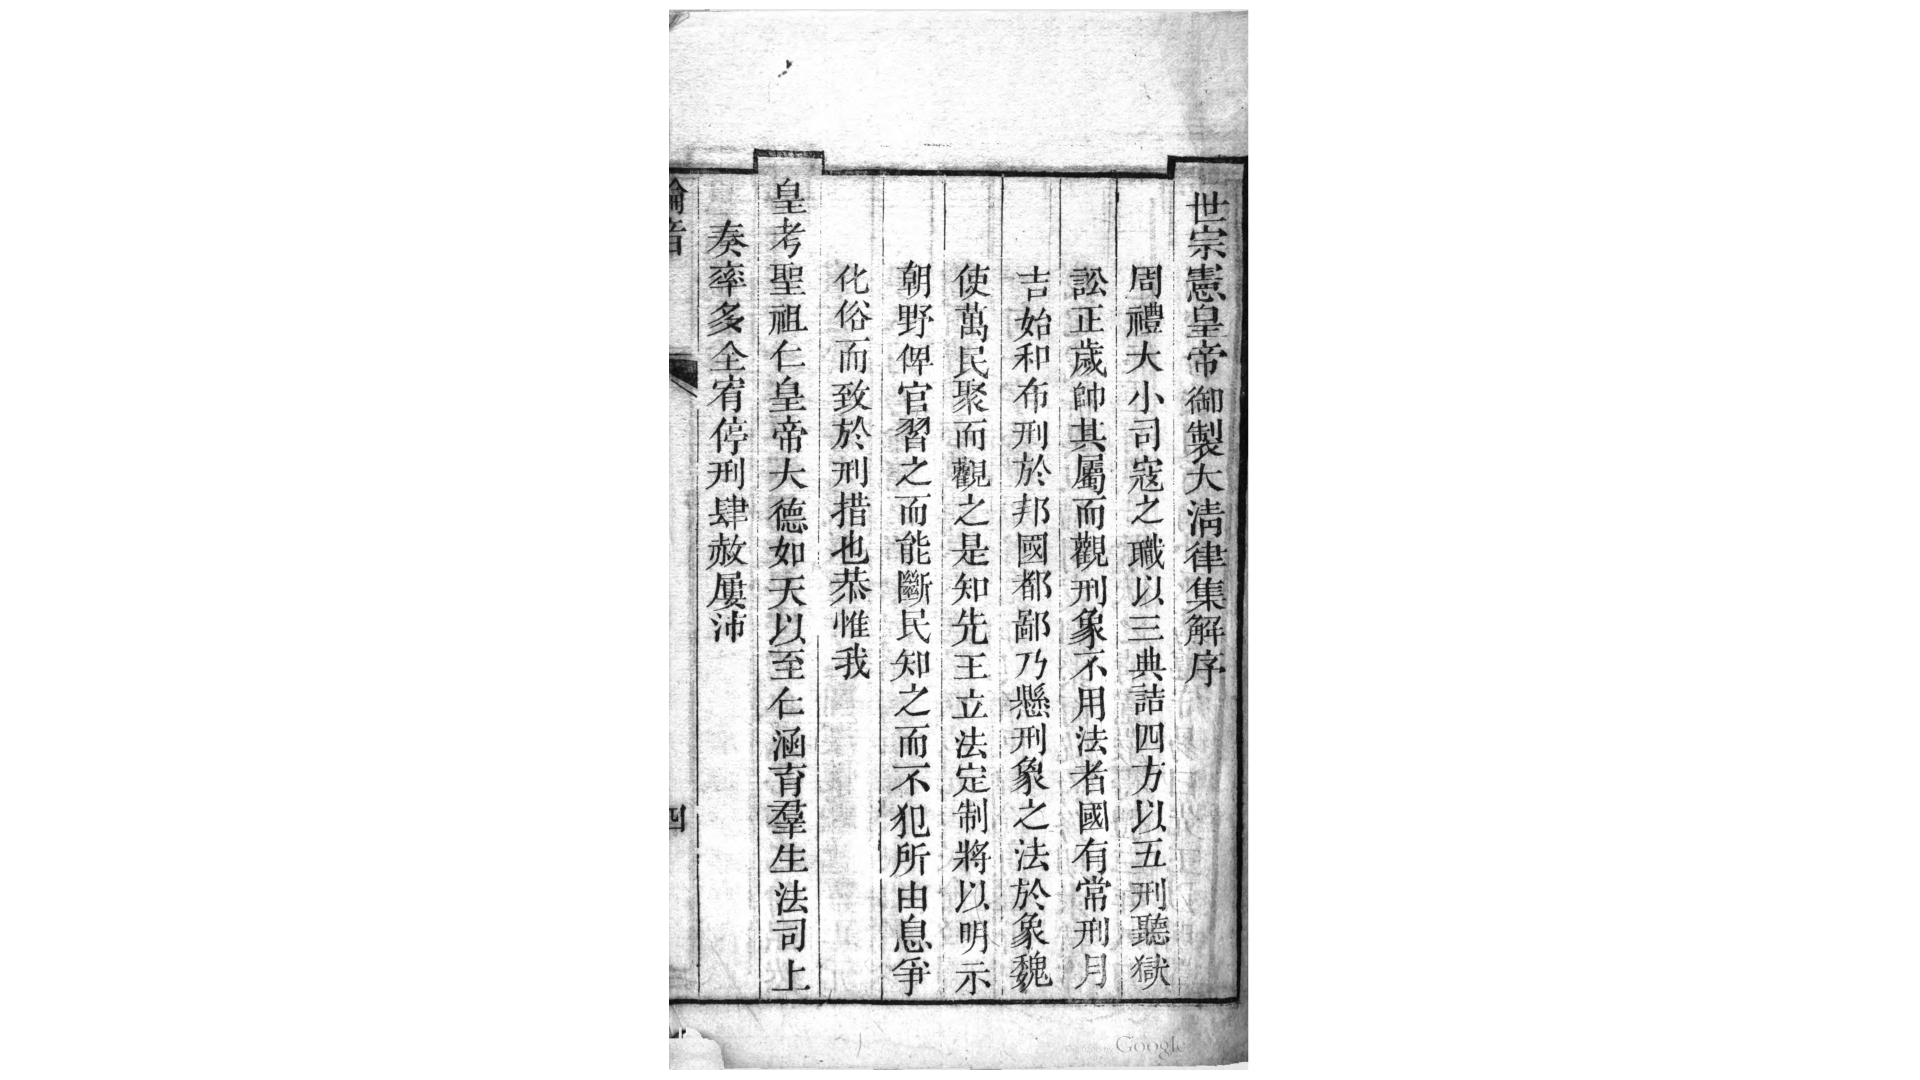 世宗憲皇帝御製大淸律集解序
周禮大小司寇之職以三典詰四方以五刑聽獄
訟正歲帥其屬而觀刑象不用法者國有常刑月
吉始和布刑於邦國都鄙乃懸刑象之法於象魏
使萬民聚而觀之是知先王立法定制將以明示
朝野俾官習之而能斷民知之而不犯所由息爭
化俗而致於刑措也恭惟我
皇考聖祖仁皇帝大德如天以至仁涵育羣生法司上
奏率多全宥停刑肆赦屢沛
四
Google